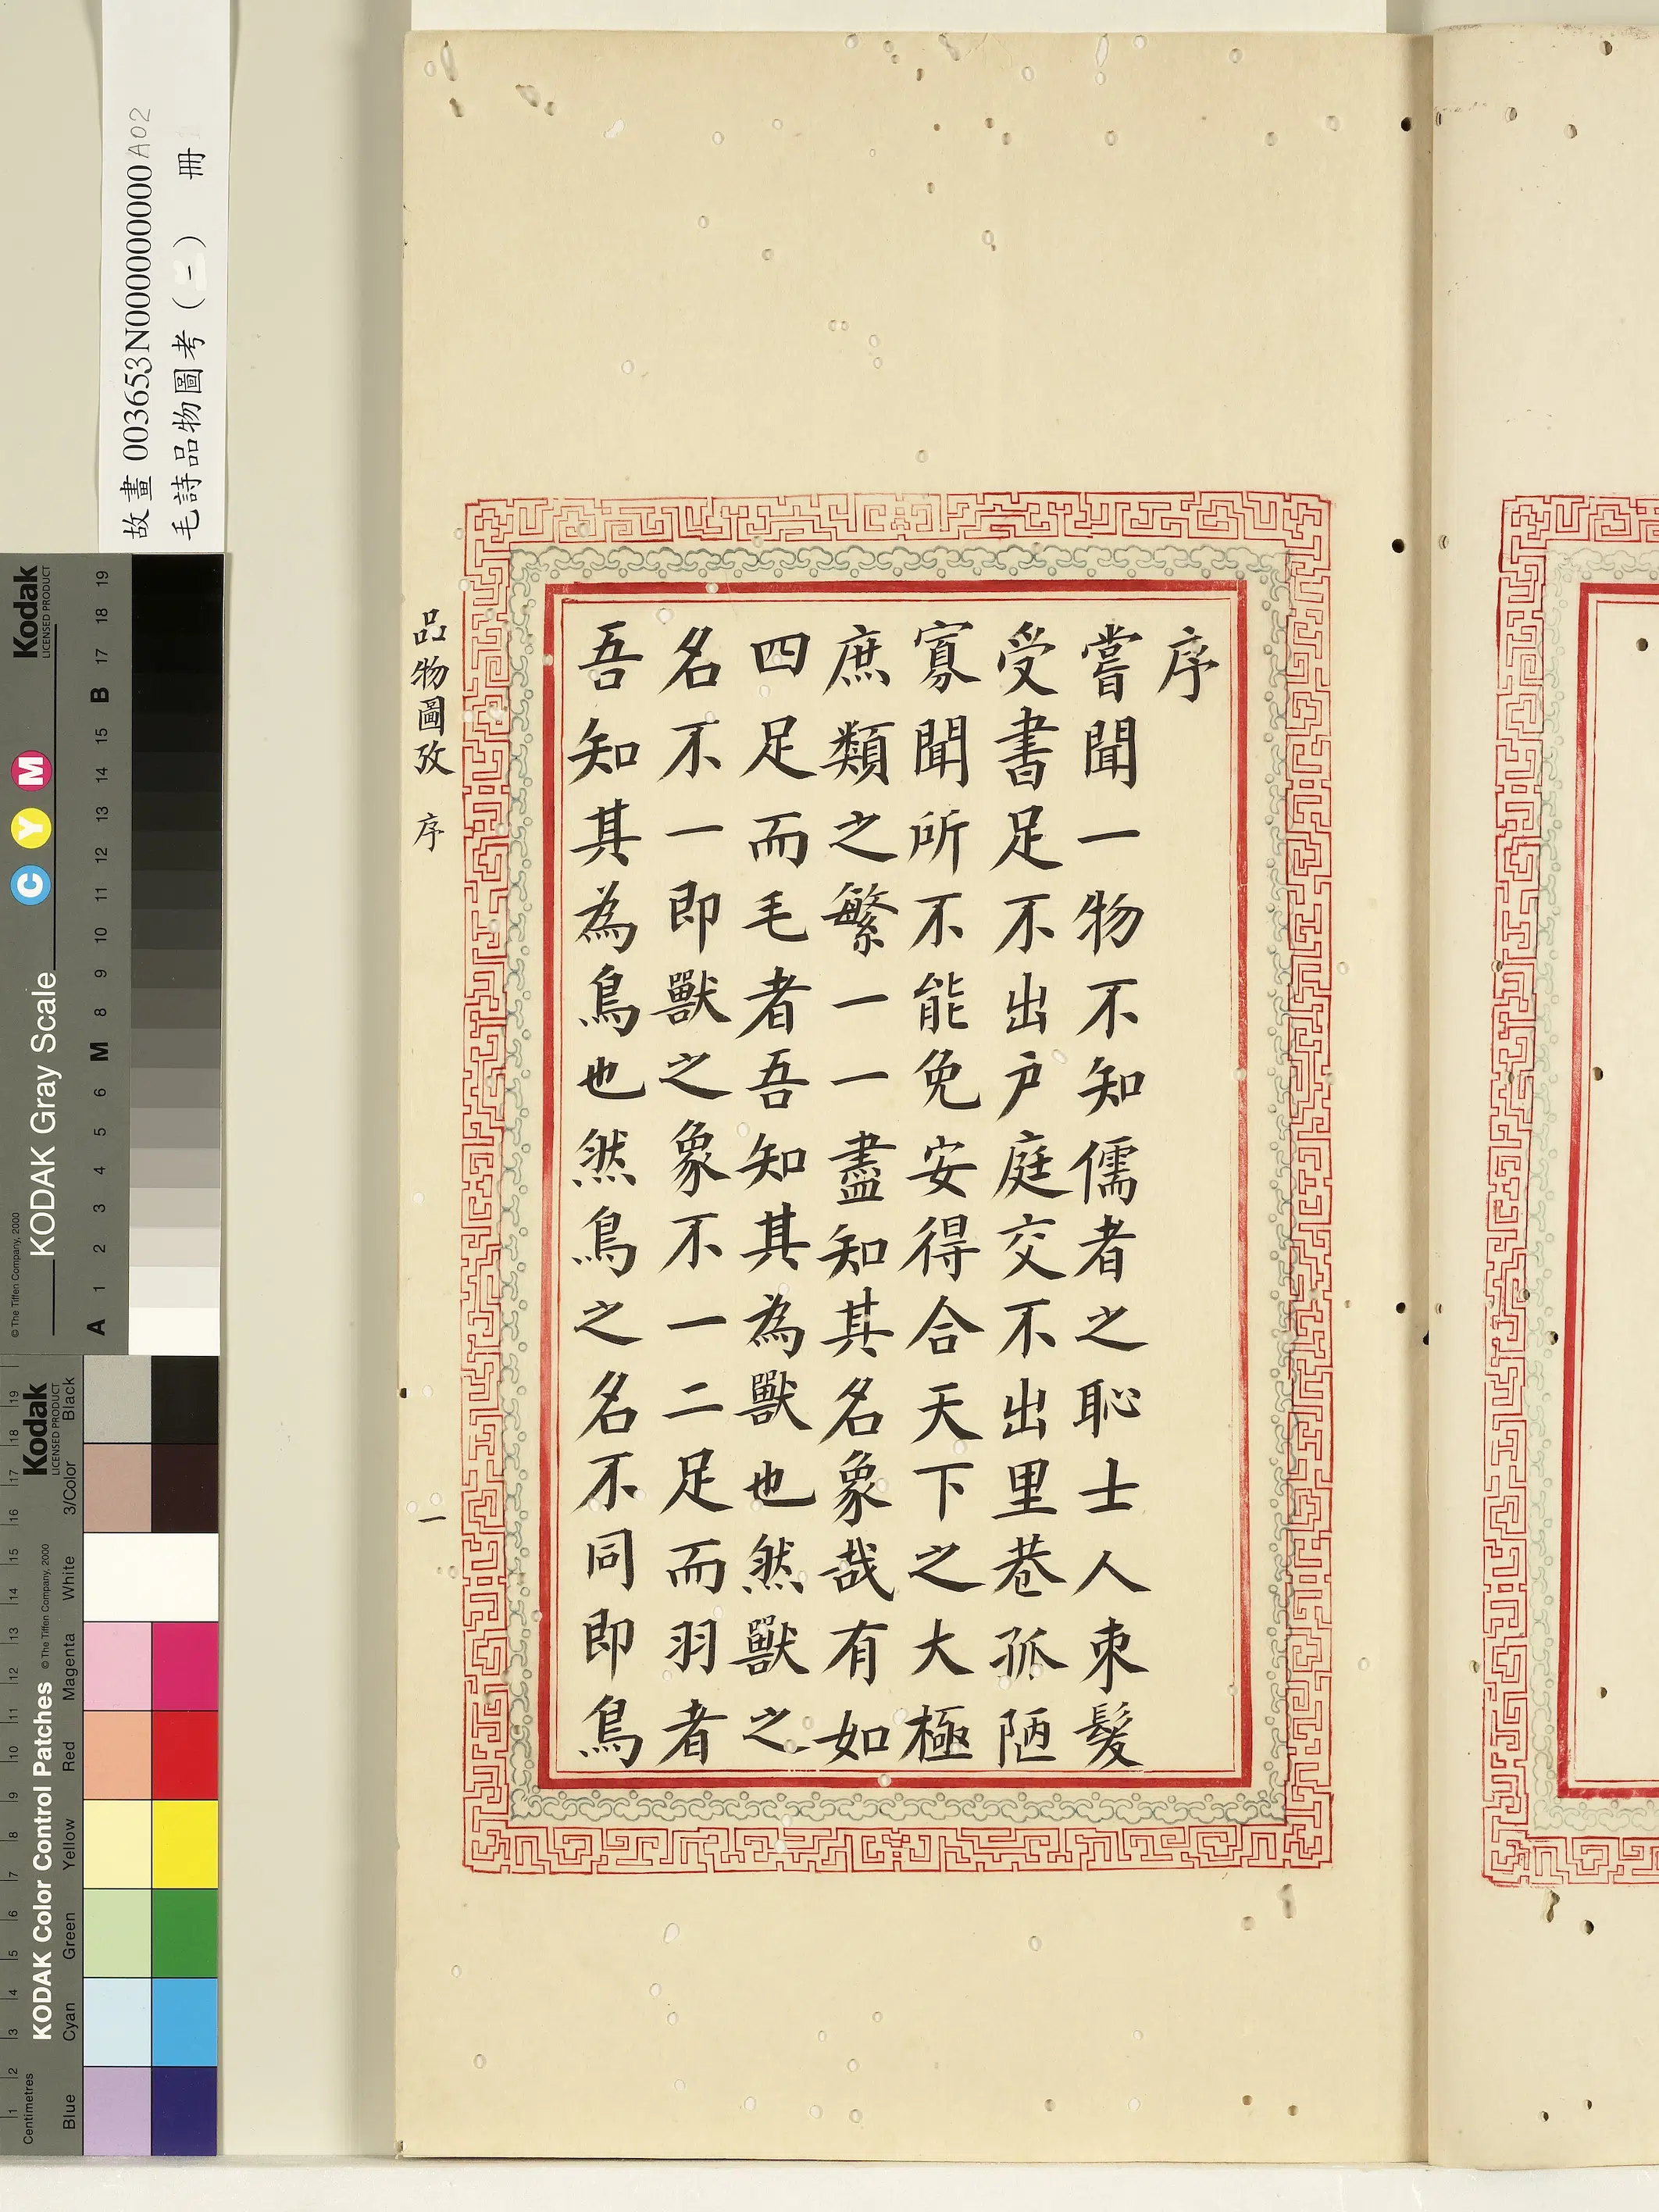 序
嘗聞一物不知儒者之恥士人束髮
受書足不出戶庭交不出里巷孤陋
寡聞所不能免安得合天下之大極
庶類之繁一一盡知其名象哉有如
四足而毛者吾知其為獸也然獸之
名不一即獸之象不一二足而羽者
吾知其為鳥也然鳥之名不同即鳥
品物圖攷 序 一
故畫 003653N000000000A02
毛詩品物圖考(一) 冊
Kodak
LICENSED PRODUCT
KODAK Gray Scale
C Y M
© The Tiffen Company, 2000
A 1 2 3 4 5 6 M 8 9 10 11 12 13 14 15 B 17 18 19
Kodak
LICENSED PRODUCT
KODAK Color Control Patches
© The Tiffen Company, 2000
Centimetres
1 2 3 4 5 6 7 8 9 10 11 12 13 14 15 16 17 18 19
Blue Cyan Green Yellow Red Magenta White 3/Color Black